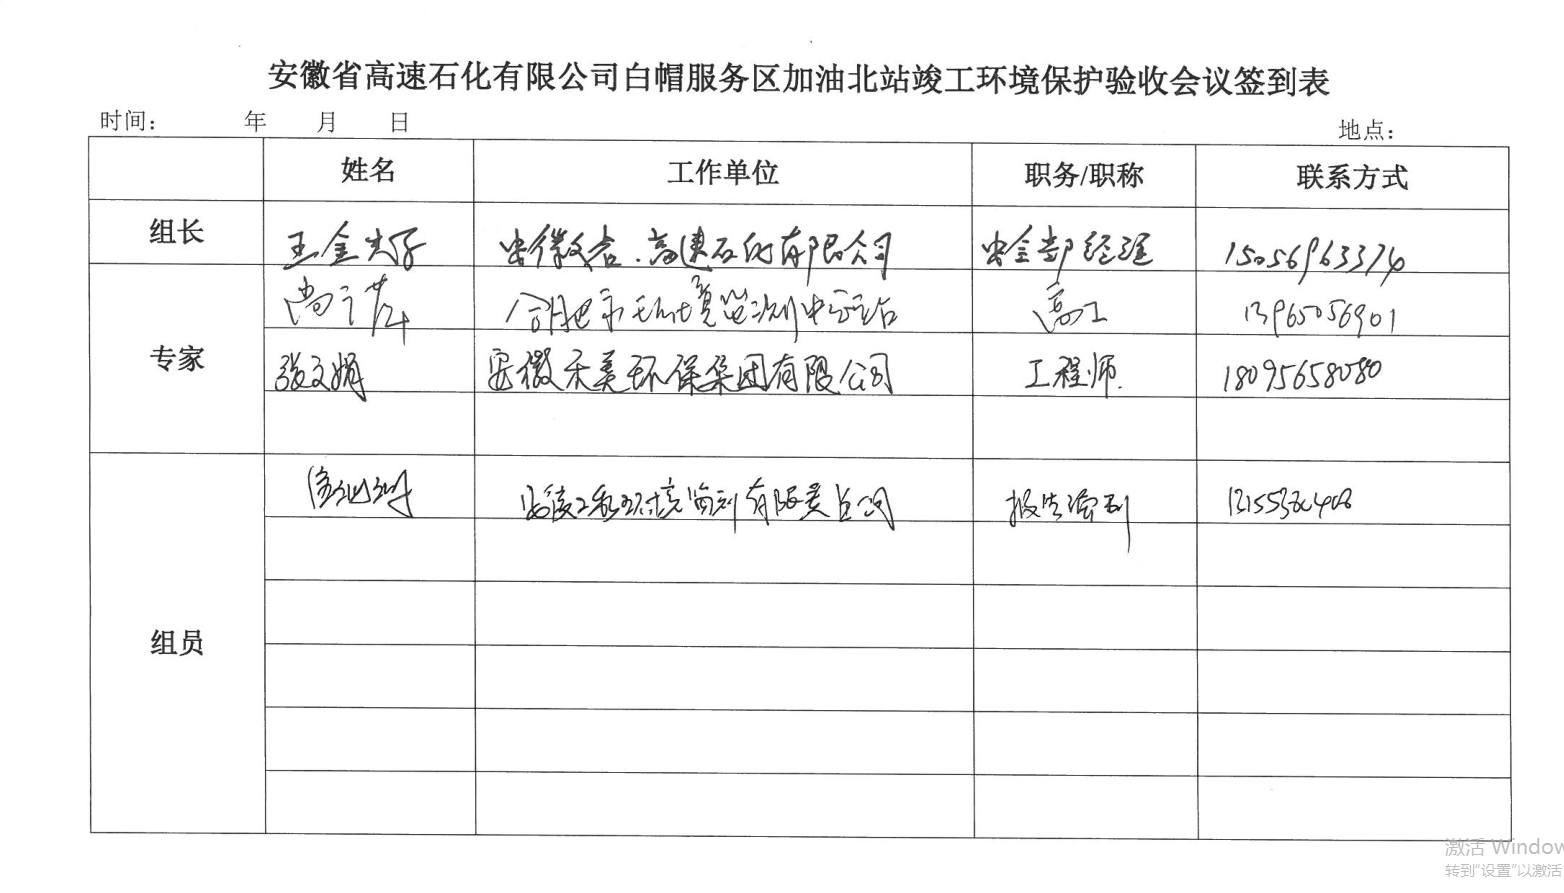 安徽省高速石化有限公司白帽服务区加油北站竣工环境保护验收会议签到表
时间： 年 月 日 地点：
姓名 工作单位 职务/职称 联系方式
组长 王金 安徽省高速石化有限公司 安全部经理 15056963374
合肥市环境监测中心站 高工 13965056901
专家 张文娟 安徽禾美环保集团有限公司 工程师 18095658080
环境 有限责任公司 报告编制
组员
激活 Window
转到"设置"以激活